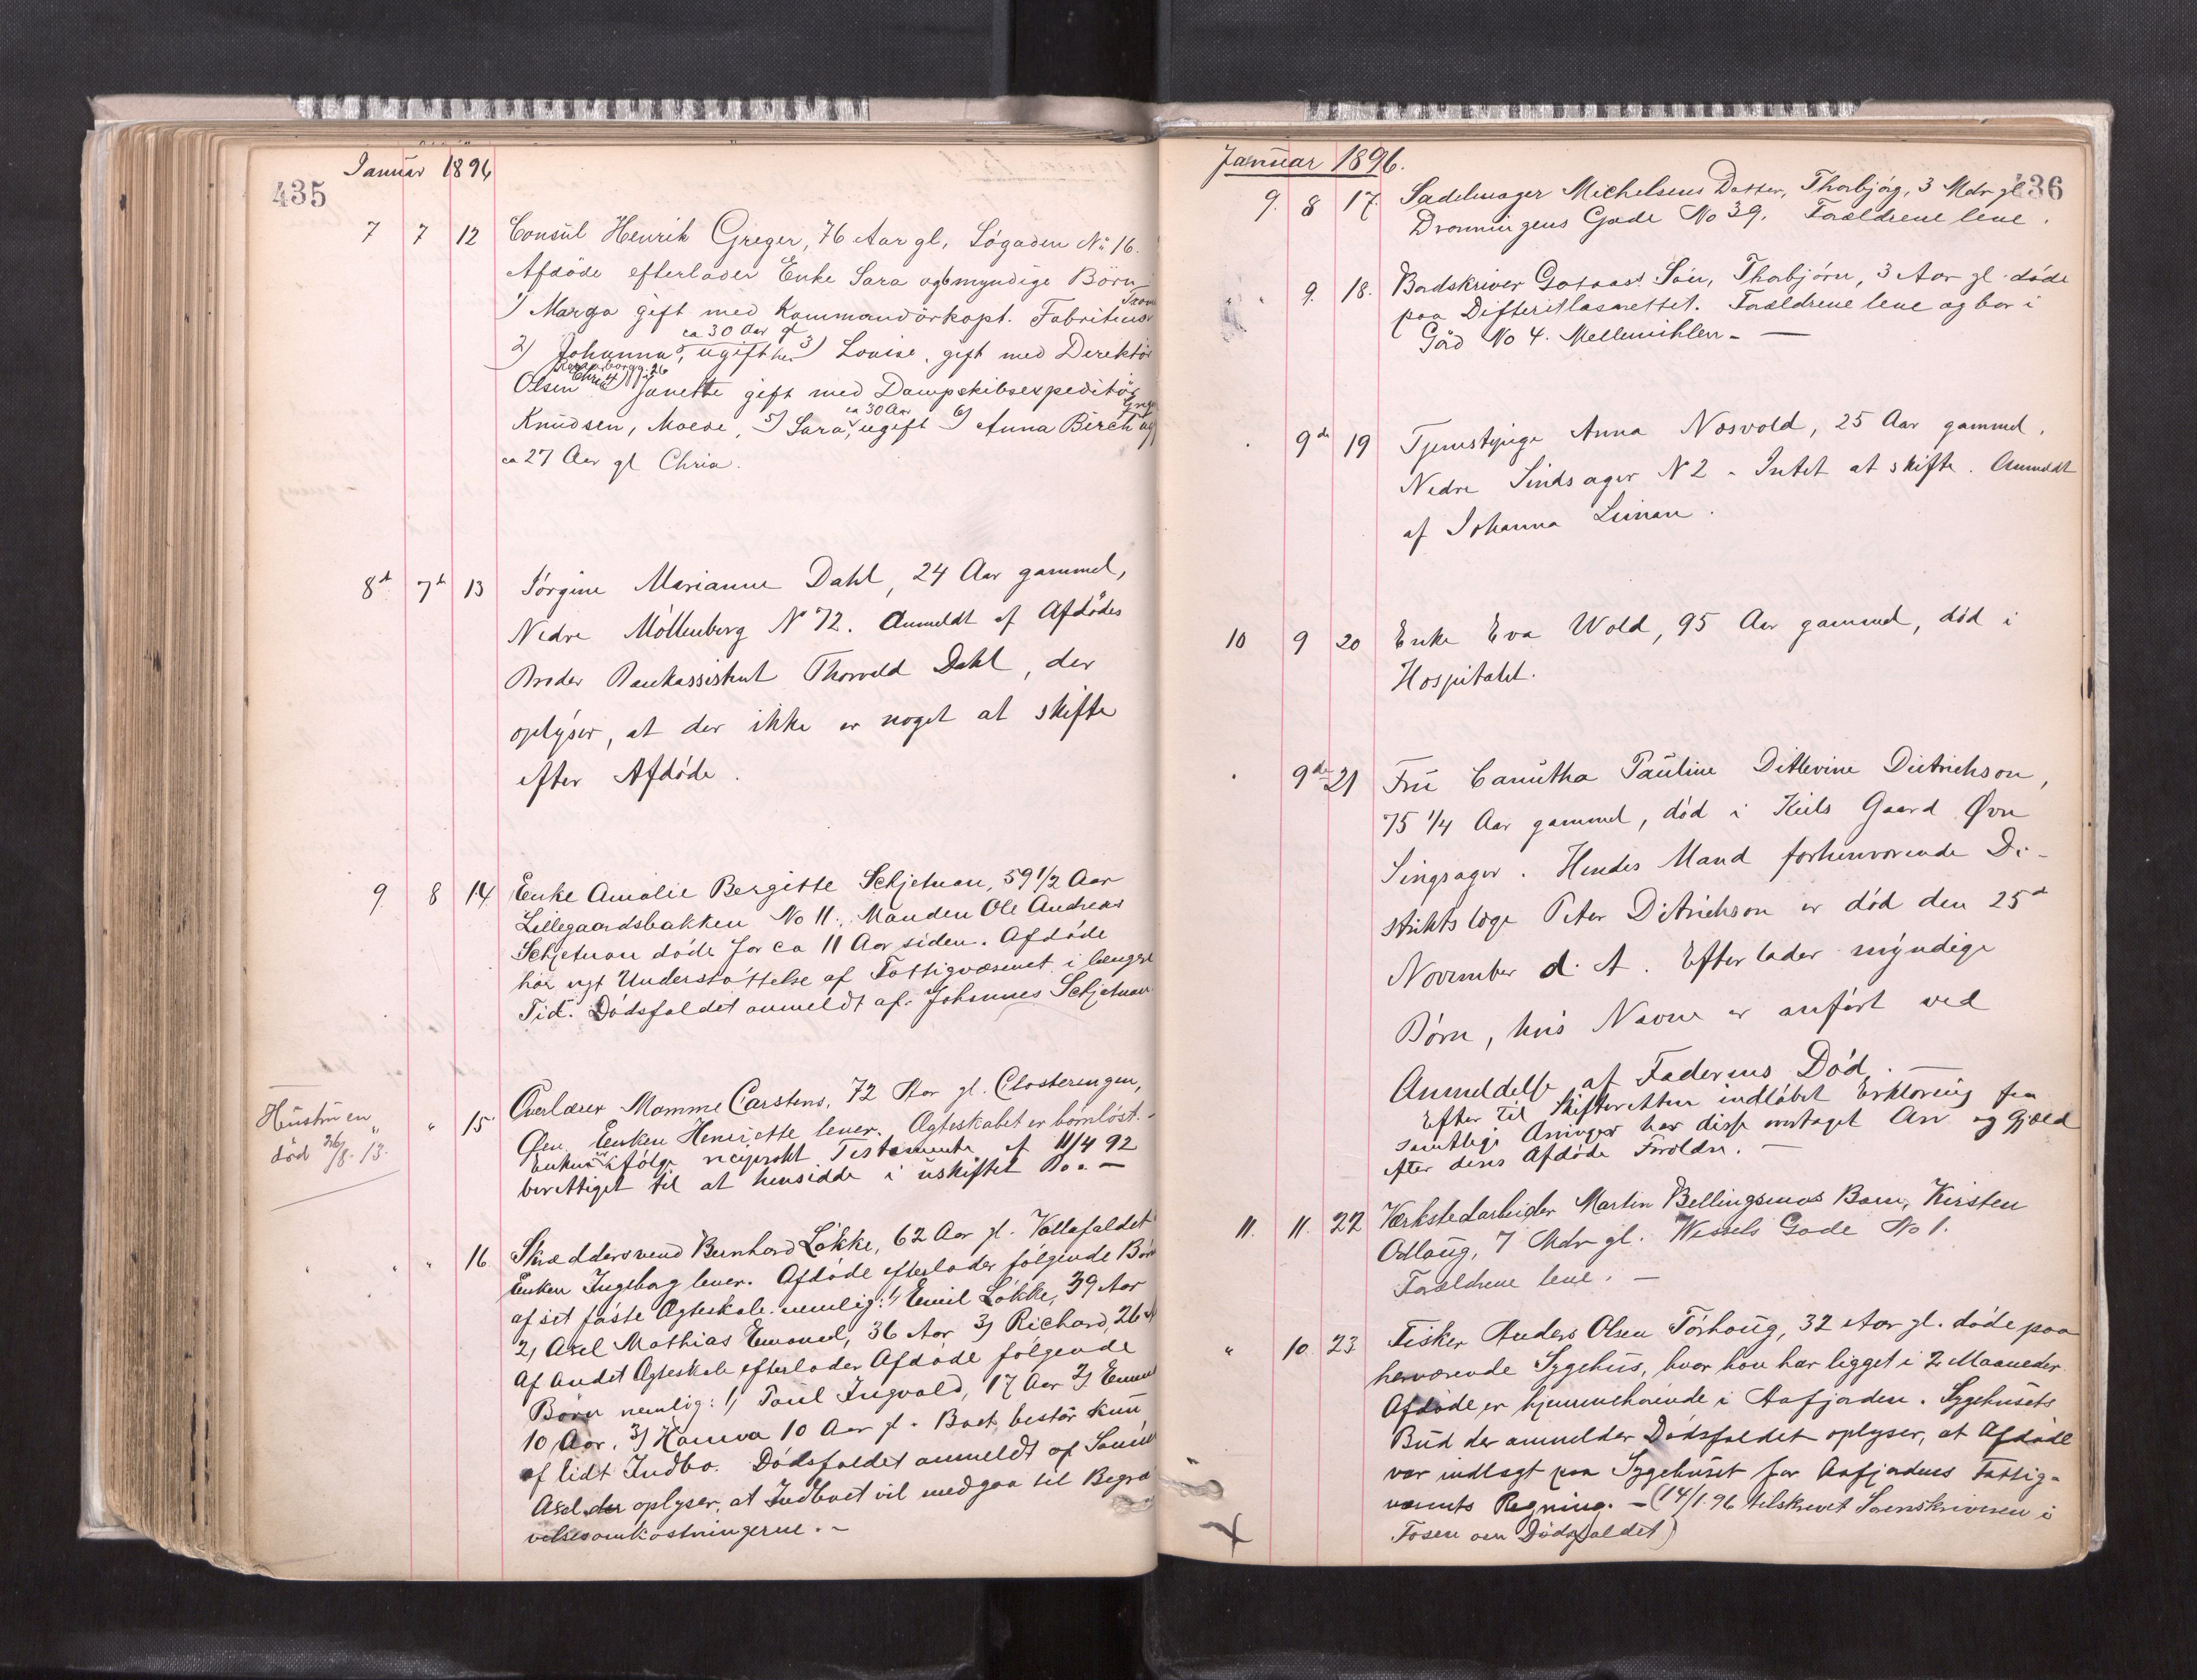 Januar 1896
435
7 7 12 Consul Henrik Greger, 76 Aar gl, Søgaden No 16.
Afdøde efterlader Enke Sara og 6 myndige Børn
1) Marga gift med Kommandörkapt. Fabritius
ca 30 Aar gl
2) Johanna, ugift her 3) Louise, gift med Direktör
Olsen Chria 4) Janette gift med Dampskibsexpeditör
ca 30 Aar
Knudsen, Moere, 5) Sara, ugift 6) Anna Birch ug
ca 27 Aar gl Chria.
8de 7de 13 Jørgine Marianne Dahl, 24 Aar gammel,
Nedre Møllenberg No 72. Anmeldt af Afdødes
Broder Bankassistent Thorvald Dahl, der
oplyser, at der ikke er noget at skifte
efter Afdøde.
9 8 14 Enke Amalie Bergitte Schjetnan, 59 1/2 Aar
Lillegaardsbakken No 11. Manden Ole Andreas
Schjetnan døde for ca 11 Aar siden. Afdøde
har nyt Understøttelse af Fattigvæsenet i længere
Tid. Dødsfaldet anmeldt af Johannes Schjetnan
Hustruen
død 26/8-13.
" " 15 Overlærer Momme Carstens, 72 Aar gl. Closterengen,
Øen, Enken Henriette lever. Ægteskabet er børnløst. -
Enken er ifølge reciprokt Testamente af 11/4 92
berettiget til at hensidde i uskiftet Bo. -
" " 16 Skræddersvend Bernhard Løkke, 62 Aar gl. Vollafaldet
Enken Ingeborg lever. Afdøde efterlader følgende Børn
af sit første Ægteskab nemlig: 1) Emil Løkke, 39 Aar
2, Axel Mathias Emanuel, 36 Aar 3, Richard, 26 "
Af andet Ægteskab efterlader Afdøde følgende
Børn nemlig: 1, Paul Ingvald, 17 Aar 2,
10 Aar, 3, Hanna 10 Aar gl. Boet består kun
af lidt Indbo. Dødsfaldet anmeldt af Sønnen
Axel der oplyser, at Indboet vil medgaa til Begra
velsesomkostningerne. -
Januar 1896.
436
9. 8 17. Sadelmager Michelsens Datter, Thorbjørg, 3 Mdr gl
Dronningens Gade No 39. Forældrene leve.
" 9. 18. Bordskriver Søn, Thorbjørn, 3 Aar gl døde
paa Difteritlasarettet. Forældrene leve og bor i
Gård No 4. Mellemihlen -
" 9de 19 Tjenestepige Anna Nosvold, 25 Aar gammel,
Nedre Sindsager No 2 - Intet at skifte. Anmeldt
af Johanna
10 9 20 Enke Eva Wold, 95 Aar gammel, død i
Hospitalet.
" 9de 21 Fru Canutha Pauline Ditlevine Dietrichson,
75 1/4 Aar gammel, død i Kiels Gaard Øvre
Singsager. Hendes Mand forhenværende Di-
striktslæge Peter Ditrichson er død den 25de
November d. A. Efterlader myndige
Børn, hvis Navne er anført ved
Anmeldelse af Faderens Død. -
Efter til Skifteretten indløbet Erklæring fra
samtlige Arvinger har disse overtaget Arv og Gjæld
efter deres Afdøde Forældre. -
11. 11. 22 Værkstedarbeider Martin Bellingsmos Barn, Kirsten
Odlaug, 7 Mdr gl. Wessels Gade No 1.
Forældrene leve. -
" 10. 23 Fisker Anders Olsen Tørhoug, 32 Aar gl. døde paa
herværende Sygehus, hvor han har ligget i 2 Maaneder.
Afdøde er hjemmehørende i Aafjorden. Sygehusets
Bud der anmelder Dødsfaldet oplyser, at Afdøde
var indlagt paa Sygehuset for Aafjordens Fattig-
væsents Regning. - (14/1.96 tilskrevet Sorenskriveren i
Fosen om Dødsfaldet)